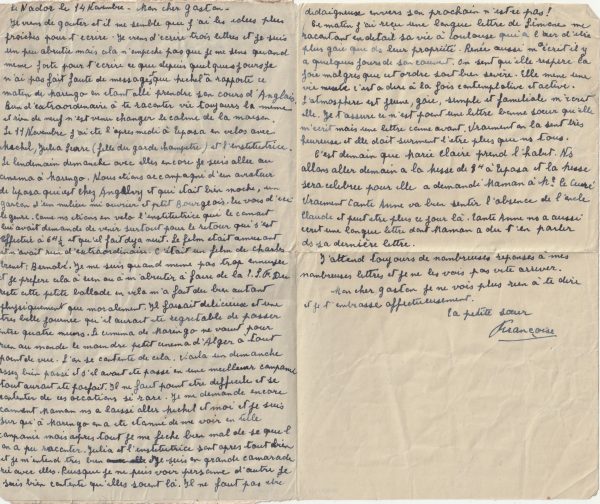 le Nador le 14 Novembre - Mon cher Gaston -
Je viens de gouter et il me semble que j'ai les idées plus
fraiches pour t'ecrire. Je viens d'ecrire trois lettres et je suis
un peu abrutie mais cela n'empeche pas que je me sens quand
même forte pour t'ecrire ce que depuis quelques jours je
n'ai pas fait faute de messages que Mechel a rapporté ce
matin de Marengo en etant allé prendre son cours d'Anglais.
Rien d'extraordinaire a te raconter vie toujours la même
et rien de neuf n'est venu changer le calme de la maison.
Le 11 Novembre j'ai été l'apres midi a Tipasa en velos avec
Mechel, Julia (fille du garde champetre) et l'institutrice.
Le lendemain dimanche avec elles encore je suis allée au
cinema a Marengo. Nous etions accompagné d'un aviateur
de Tipasa qui est chez et qui etait bien moche, un
garçon d'un milieu mi ouvrier et petit Bourgeois. Tu vois d'ici
le genre. Comme nous etions en velo l'institutrice qui le connait
lui avait demandé de venir surtout pour le retour qui s'est
effectué à 6h½ et qu'il fait deja nuit. Le film etait amusant
et n'avait rien d'extraordinaire. C'etait un film de Charles
Trenet: Je me suis quand même pas trop ennuyée
et je prefere cela à rien ou a m'abrutir à faire de la Du
reste cette petite ballade en velo m'a fait du bien autant
physiquement que moralement. Il faisait delicieux et une
très belle journée qu'il aurait été regretable de passer
entre quatre murs. Le cinema de Marengo ne vaut pour
rien au monde le moindre petit cinema d'Alger a tout
point de vue. L'on se contente de cela. Voila un dimanche
assez bien passé et s'il avait été passé en une meilleure compagnie
tout aurait été parfait. Il ne faut point etre difficile et se
contenter de ces occations si rare. Je me demande encore
comment Maman nous a laissé aller Mechel et moi et je suis
sur qu'à Marengo on a été etonné de me voir en telle
compagnie mais apres tout je me fiche bien mal de ce que l'
on a pu raconter. Julia et l'institutrice sont apres tout bien
et je m'entend très bien je suis en grande camarade
rie avec elles. Puisque je ne puis voir personne d'autre je
suis bien contente qu'elles soient là. Il ne faut pas être
dédaigneuse envers son prochain n'est ce pas!
Ce matin j'ai reçu une longue lettre de Simone me
racontant en detail sa vie à Toulouse qui a l'air d'etre
plus gaie que de leur propriété. Renée aussi m'ecrit il y
a quelques jours de son couvent. On sent qu'elle respire la
joie malgres que cet ordre soit bien severe. Elle mene une
vie c'est a dire à la fois contemplative et active.
L'atmosphère est jeune, gaie, simple et familiale m'ecrit
elle. Je t'assure ce n'est point une lettre bonne sœur qu'elle
m'ecrit mais une lettre comme avant. Vraiment on la sent très
heureuse et elle doit surement l'etre plus que nous tous.
C'est demain que Marie Claire prend l'habit. Ns
allons aller demain à la Messe de a Tipasa et la Messe
sera celebrée pour elle a demandé Maman à Mr le Curé
Vraiment Tante Anne va bien sentir l'absence de l'oncle
Claude et peut etre plus ce jour là. Tante Anne ns a aussi
ecrit une longue lettre dont Maman a du t'en parler
ds sa derniere lettre.
J'attend toujours de nombreuses reponses à mes
nombreuses lettres et je ne les vois pas vite arriver.
Mon cher Gaston je ne vois plus rien à te dire
et je t'embrasse affectueusement.
la petite sœur
Françoise